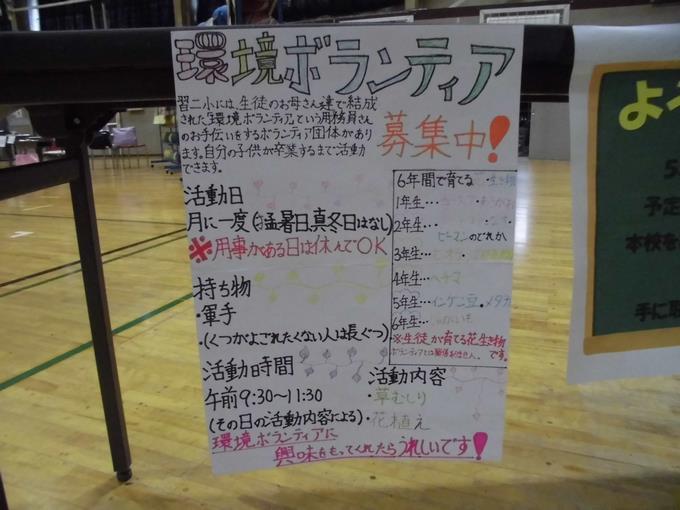 環境ボランティア
募集中!
習二小には、生徒のお母さん達で結成
された「環境ボランティア」という用務員さん
のお手伝いをするボランティア団体があり
ます。自分の子供が卒業するまで活動
できます。
活動日
月に一度(猛暑日、真冬日はなし)
※用事がある日は休んでOK
持ち物
・軍手
・(くつがよごれたくない人は長ぐつ)
活動時間
午前9:30~11:30
(その日の活動内容による)
6年間で育てる
1年生…
2年生…
ピーマンのどれか
3年生…
4年生…ヘチマ
5年生…インゲン豆・メダカ
6年生…じゃがいも
※生徒が育てる花、生き物
です。
活動内容
・草むしり
・花植え
環境ボランティアに
興味をもってくれたらうれしいです!
よ
予定
本校を
手に取